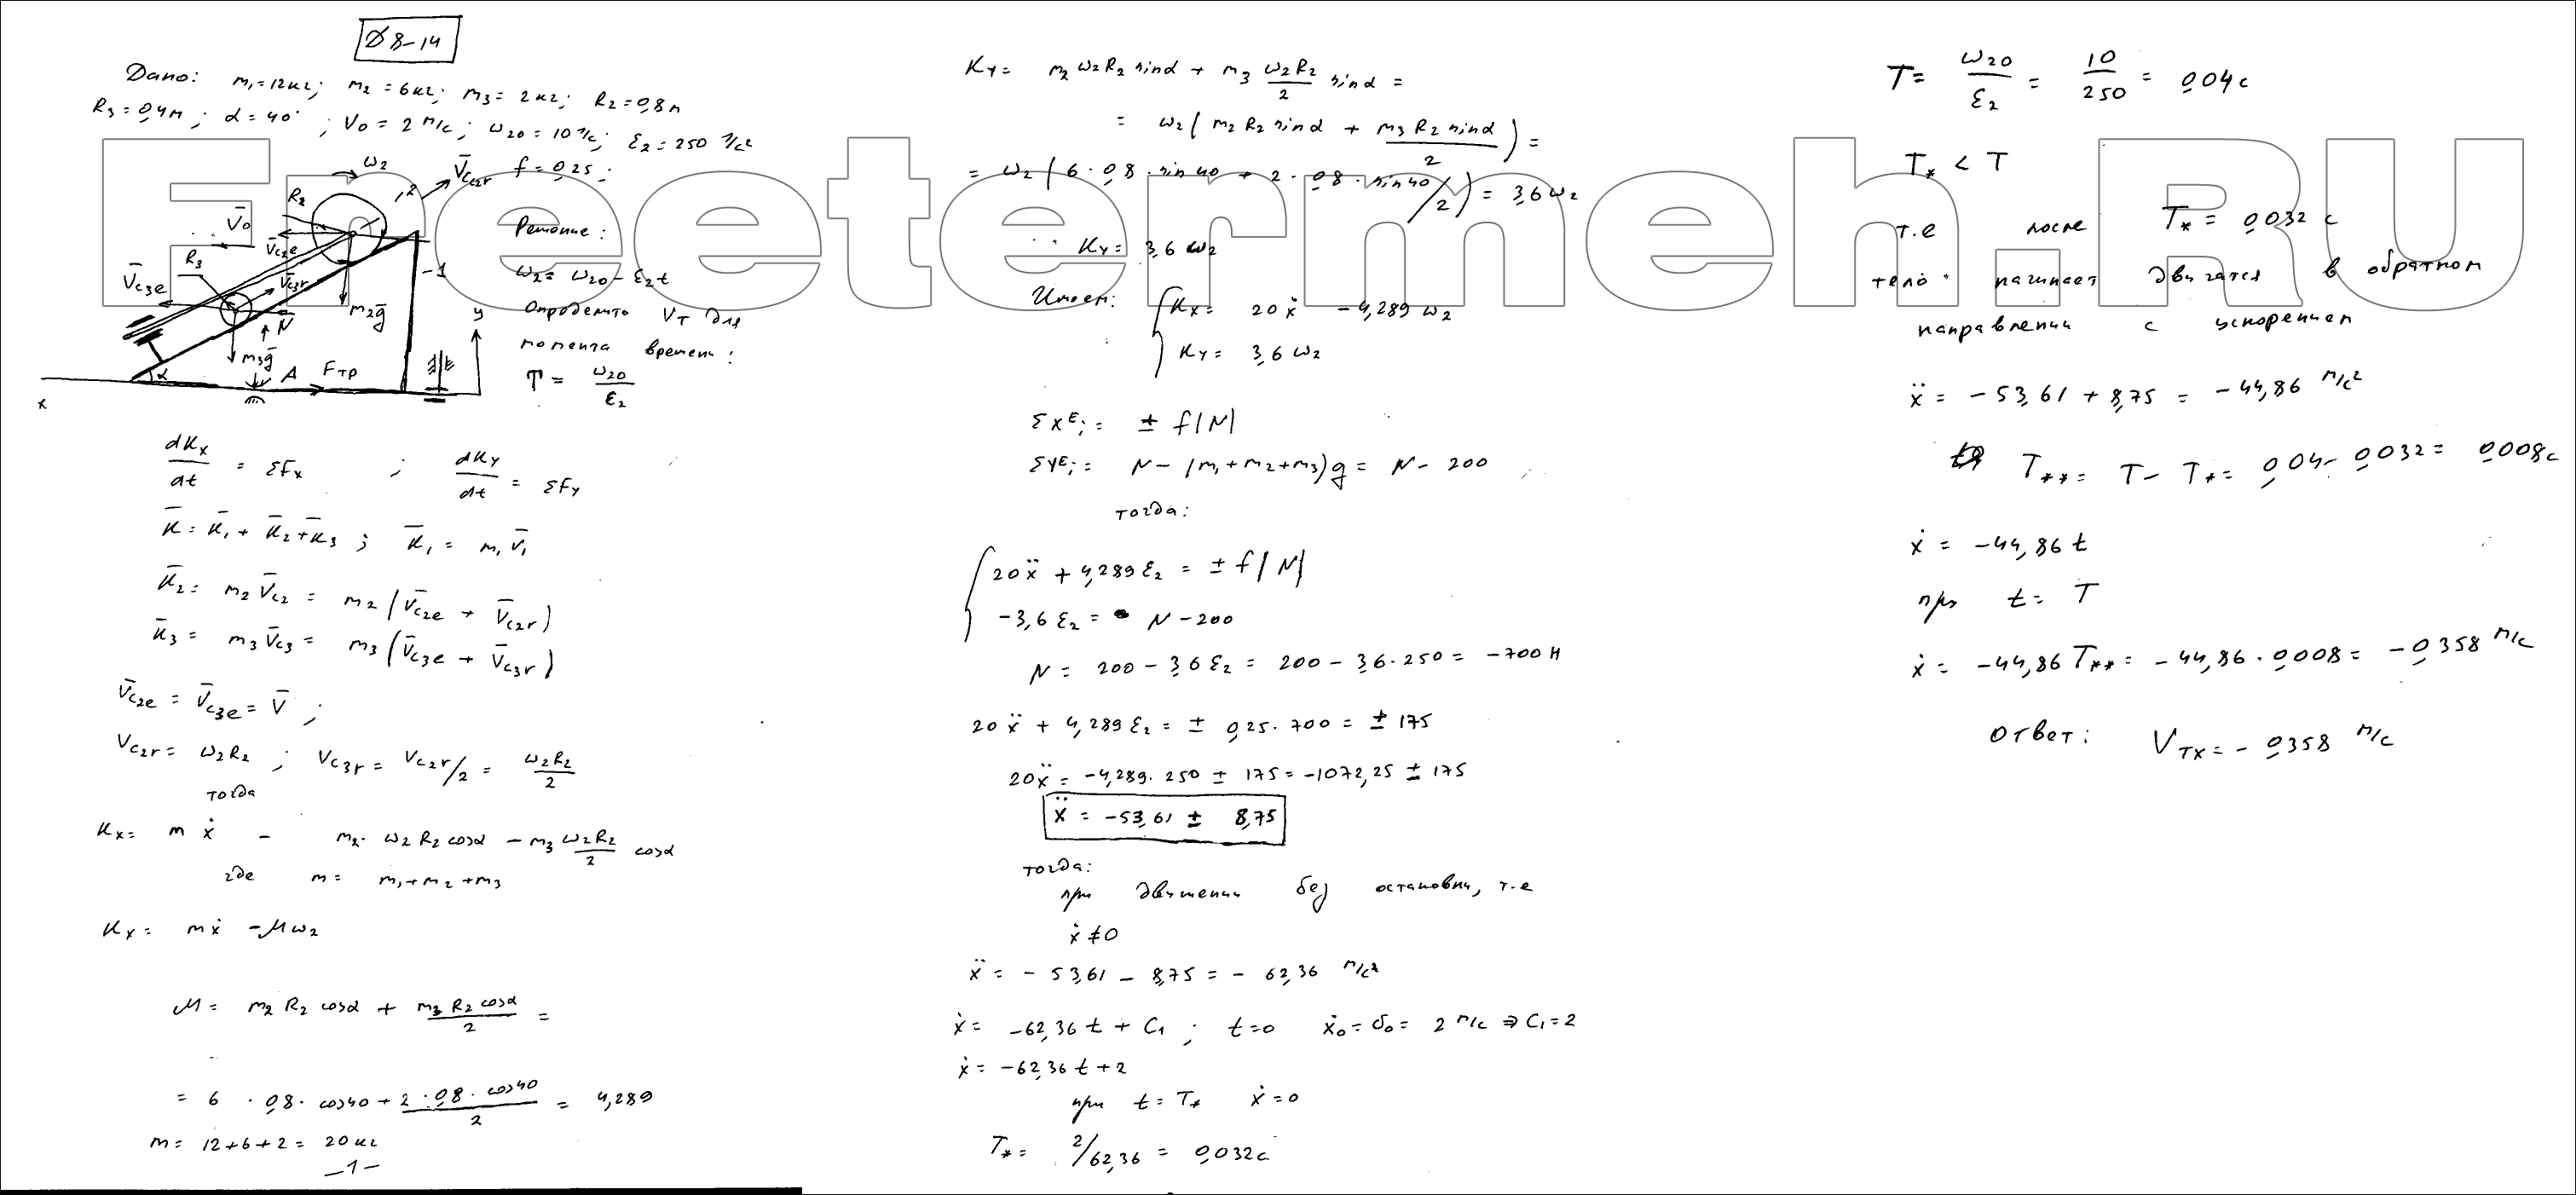 Д8-14
Дано: m₁=12кг; m₂=6кг; m₃=2кг; R₂=0,8м
R₃=0,4м; α=40°; V₀=2 м/с; ω₂₀=10 1/с; ε₂=250 1/с²
f=0,25;
ω₂
V̄c₂r
2
R₂
V̄₀
V̄c₂e
R₃
V̄c₃e
V̄c₃r
1
N̄
m₂ḡ
m₃ḡ
α
A
Fтр
y
x
Решение:
ω₂=ω₂₀-ε₂t
Определить V_T для
момента времени:
T = ω₂₀/ε₂
dKx/dt = ΣFx ; dKy/dt = ΣFy
K̄=K̄₁+K̄₂+K̄₃ ; K̄₁=m₁V̄₁
K̄₂= m₂V̄c₂ = m₂(V̄c₂e + V̄c₂r)
K̄₃= m₃V̄c₃ = m₃(V̄c₃e + V̄c₃r)
V̄c₂e = V̄c₃e = V̄ ;
Vc₂r = ω₂R₂ ; Vc₃r = Vc₂r/2 = ω₂R₂/2
тогда
Kx= mẋ - m₂·ω₂R₂cosα - m₃ ω₂R₂/2 cosα
где m= m₁+m₂+m₃
Kx= mẋ -Mω₂
M= m₂R₂cosα + m₃R₂cosα/2 =
= 6·0,8·cos40+2·0,8·cos40/2 = 4,289
m= 12+6+2= 20кг
-1-
Ky= m₂ω₂R₂sinα + m₃ ω₂R₂/2 sinα =
= ω₂(m₂R₂sinα + m₃R₂sinα/2) =
= ω₂(6·0,8·sin40 + 2·0,8·sin40/2) = 3,6ω₂
Ky= 3,6ω₂
Имеем:
{Kx= 20ẋ -4,289ω₂
Ky= 3,6ω₂
ΣXᴱᵢ= ± f|N|
ΣYᴱᵢ= N-(m₁+m₂+m₃)g= N-200
тогда:
{20ẍ+4,289ε₂ = ±f|N|
-3,6ε₂ = N-200
N= 200-3,6ε₂= 200-3,6·250= -700Н
20ẍ + 4,289ε₂= ± 0,25·700= ±175
20ẍ= -4,289·250 ± 175= -1072,25 ± 175
ẍ = -53,61 ± 8,75
тогда:
при движении без остановки, т.е
ẋ≠0
ẍ= -53,61-8,75= -62,36 м/с²
ẋ= -62,36t + C₁ ; t=0 ẋ₀=υ₀= 2 м/с ⇒ C₁=2
ẋ= -62,36t+2
при t= T* ẋ=0
T*= 2/62,36 = 0,032с
T= ω₂₀/ε₂ = 10/250 = 0,04с
T* < T
т.е после T*= 0,032 с
тело начинает двигатся в обратном
направлении с ускорением
ẍ= -53,61+8,75 = -44,86 м/с²
T**= T-T*= 0,04-0,032= 0,008с
ẋ= -44,86t
при t= T
ẋ= -44,86T**= -44,86·0,008= -0,358 м/с
Ответ: V_TX= -0,358 м/с
Freetermeh.RU